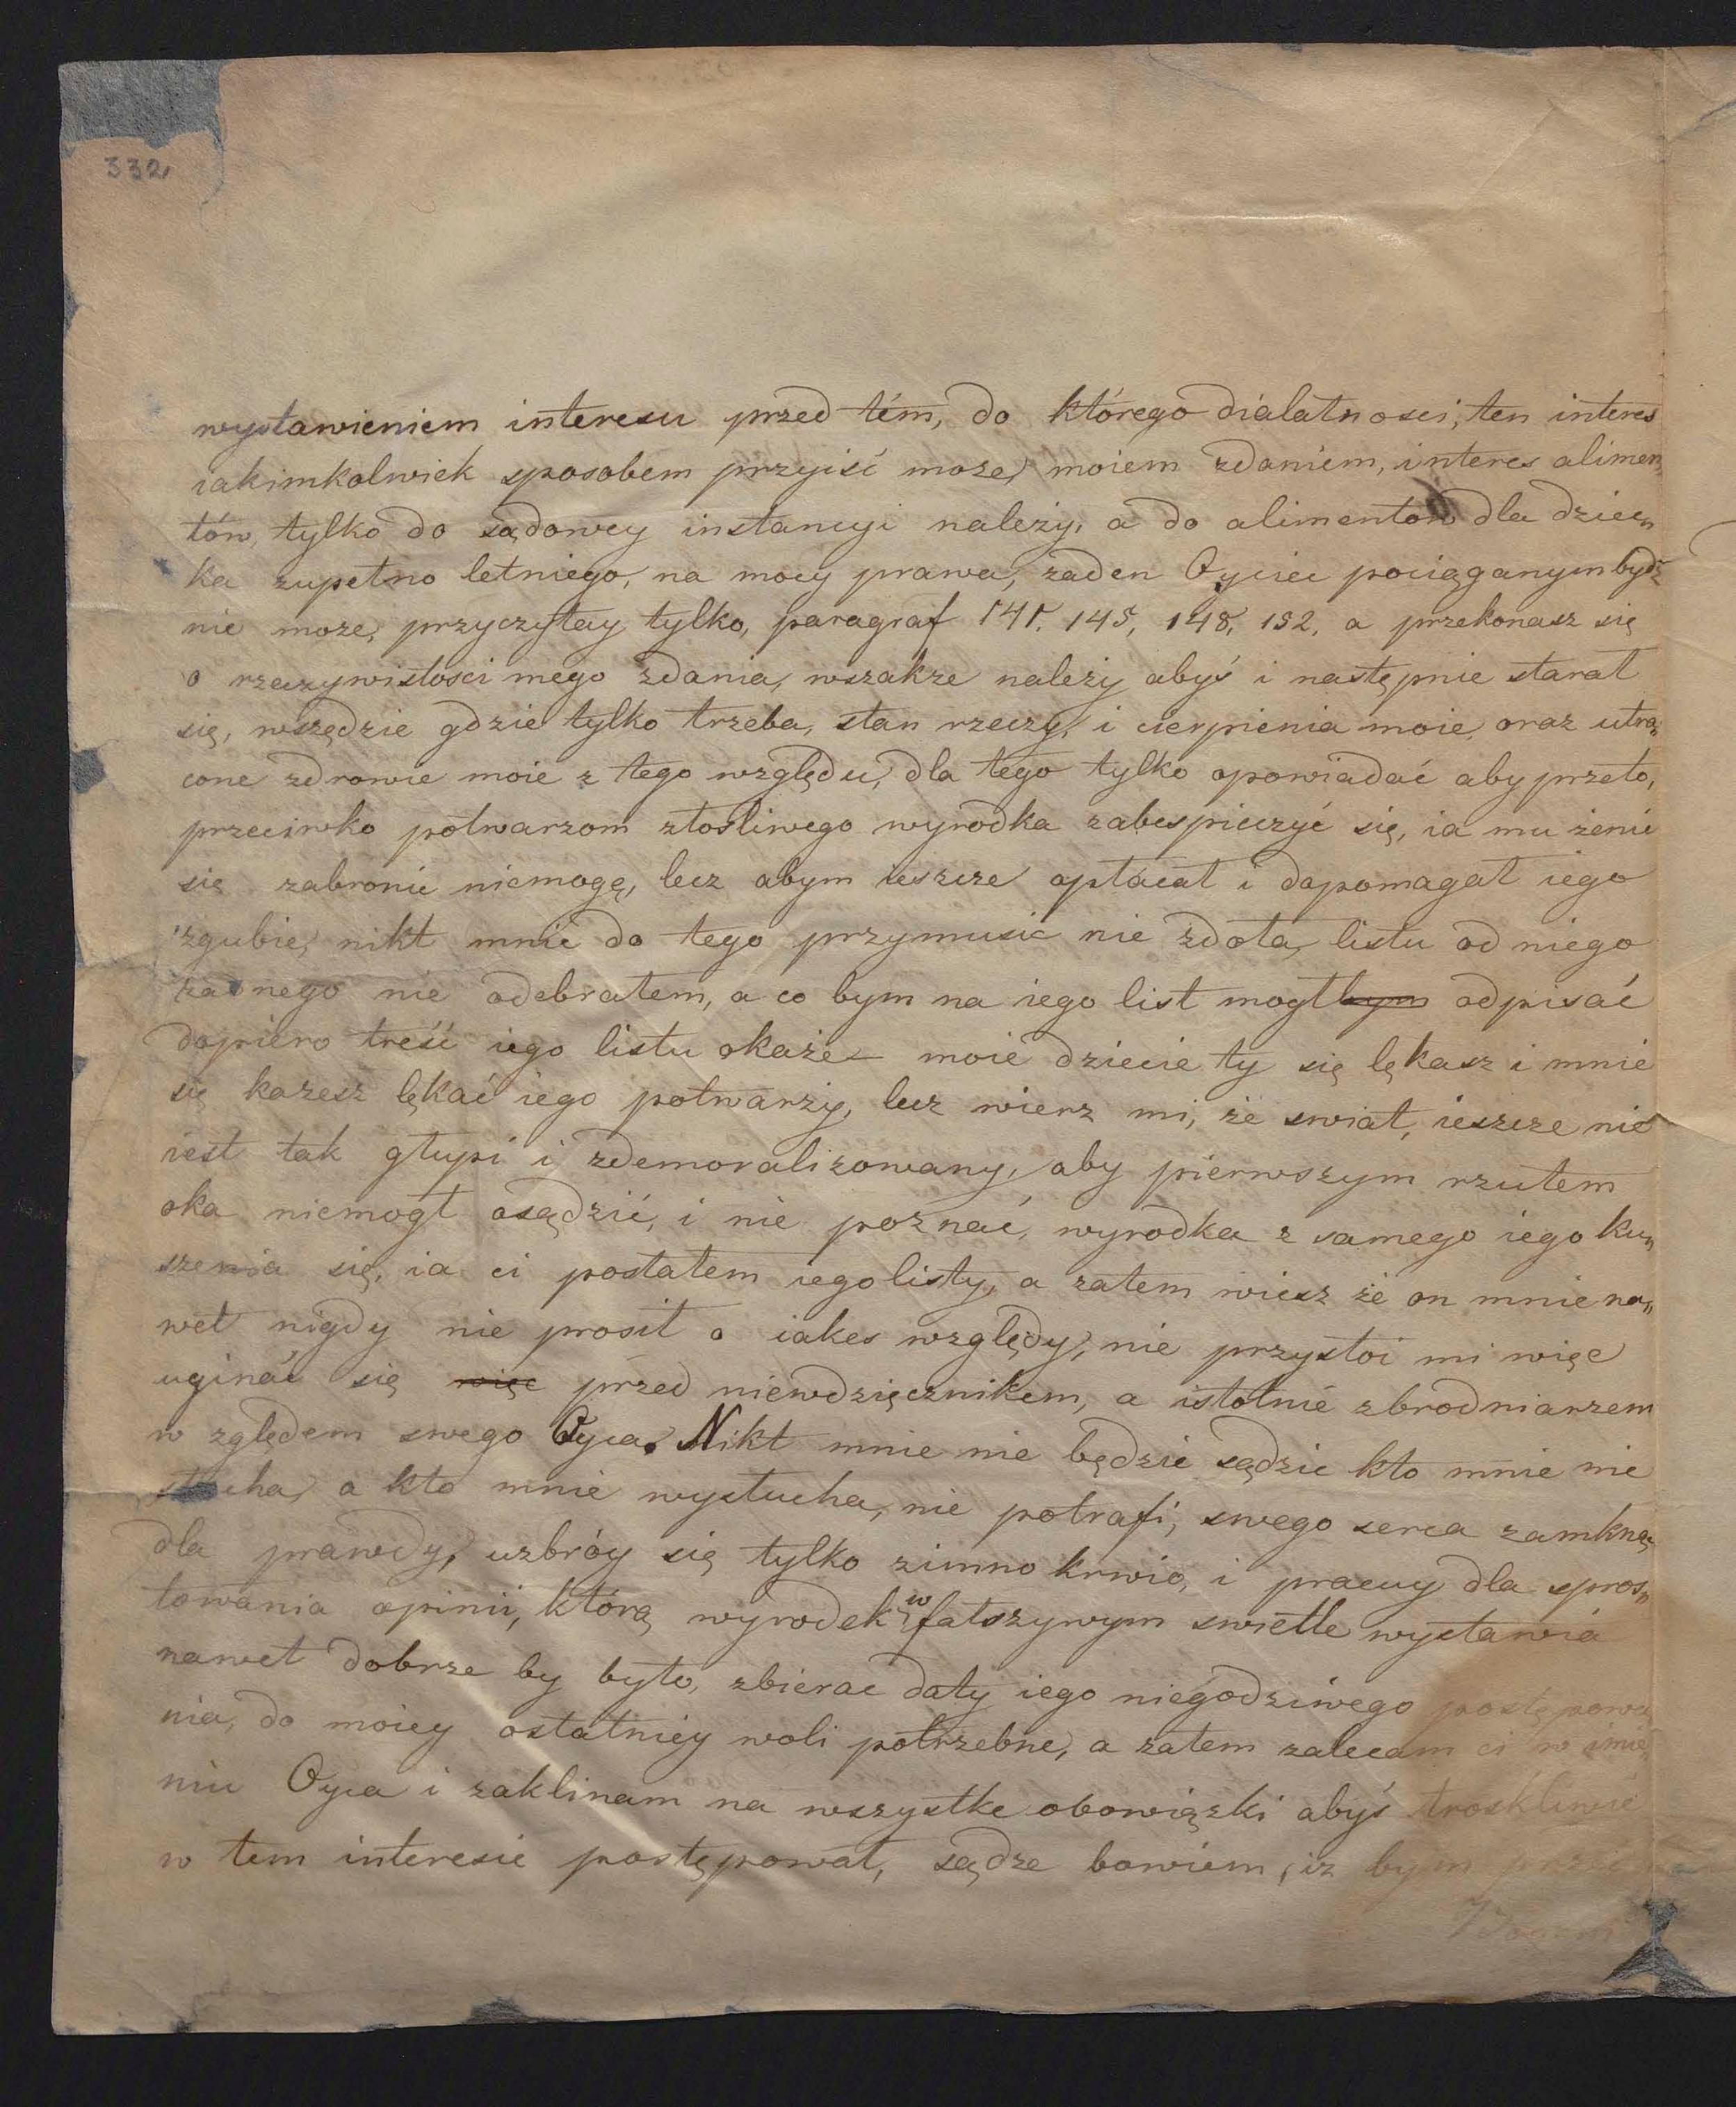 332,
wystawieniem interesu przed tém, do którego dialatnosci, ten interes
iakimkolwiek sposobem przyiść może, moiem zdaniem, interes alimen„
tów, tylko do sądowey instancyi należy, a do alimentow dla dziec„
ka zupełno letniego, na mocy prawa, żaden Oyciec pociąganym bydź
nie może, przyczytay tylko, paragraf 141. 145, 148, 152, a przekonasz się
o rzeczywistosci mego zdania, wszakże należy abyś i następnie starał
się, wszędzie gdzie tylko trzeba, stan rzeczy, i cierpienia moie, oraz utra„
cone zdrowie moie z tego względu, dla tego tylko opowiadać aby przeto,
przeciwko potwarzom złosliwego wyrodka zabespieczyć się, ia mu żenie
się zabronic niemogę, lecz abym ieszcze opłacał i dopomagał iego
zgubie, nikt mnie do tego przymusic nie zdoła, listu od niego
żadnego nie odebrałem, a co bym na iego list mogł bym odpisać
dopiero treść iego listu okaże – moie dziecie ty się lękasz i mnie
się każesz lękać iego potwarzy, lecz wierz mi, że swiat, ieszcze nie
iest tak głupi i zdemoralizowany, aby pierwszym rzutem
oka niemogł osądzić, i nie poznać, wyrodka z samego iego ku„
szenia się, ia ci posłałem iego listy, a zatem wiesz że on mnie na„
wet nigdy nie prosił o iakes względy, nie przystoi mi więc
uginać się więc przed niewdzięcznikem, a istotnie zbrodniarzem
w zględem swego Oyca. Nikt mnie nie będzie sądzic kto mnie nie
słucha, a kto mnie wysłucha, nie potrafi, swego serca zamkną„
dla prawdy, uzbróy się tylko zimno krwio, i pracuy dla spros„
towania opinii, którą wyrodek w fałszywym swietle wystawia
nawet dobrze by było, zbierac daty iego niegodziwego postępowa
nia, do moiey ostatniey woli potrzebne, a zatem zalecam ci w imie„
niu Oyca i zaklinam na wszystke obowiązki abyś troskliwie
w tem interesie postępował, sądze bowiem, iz bym